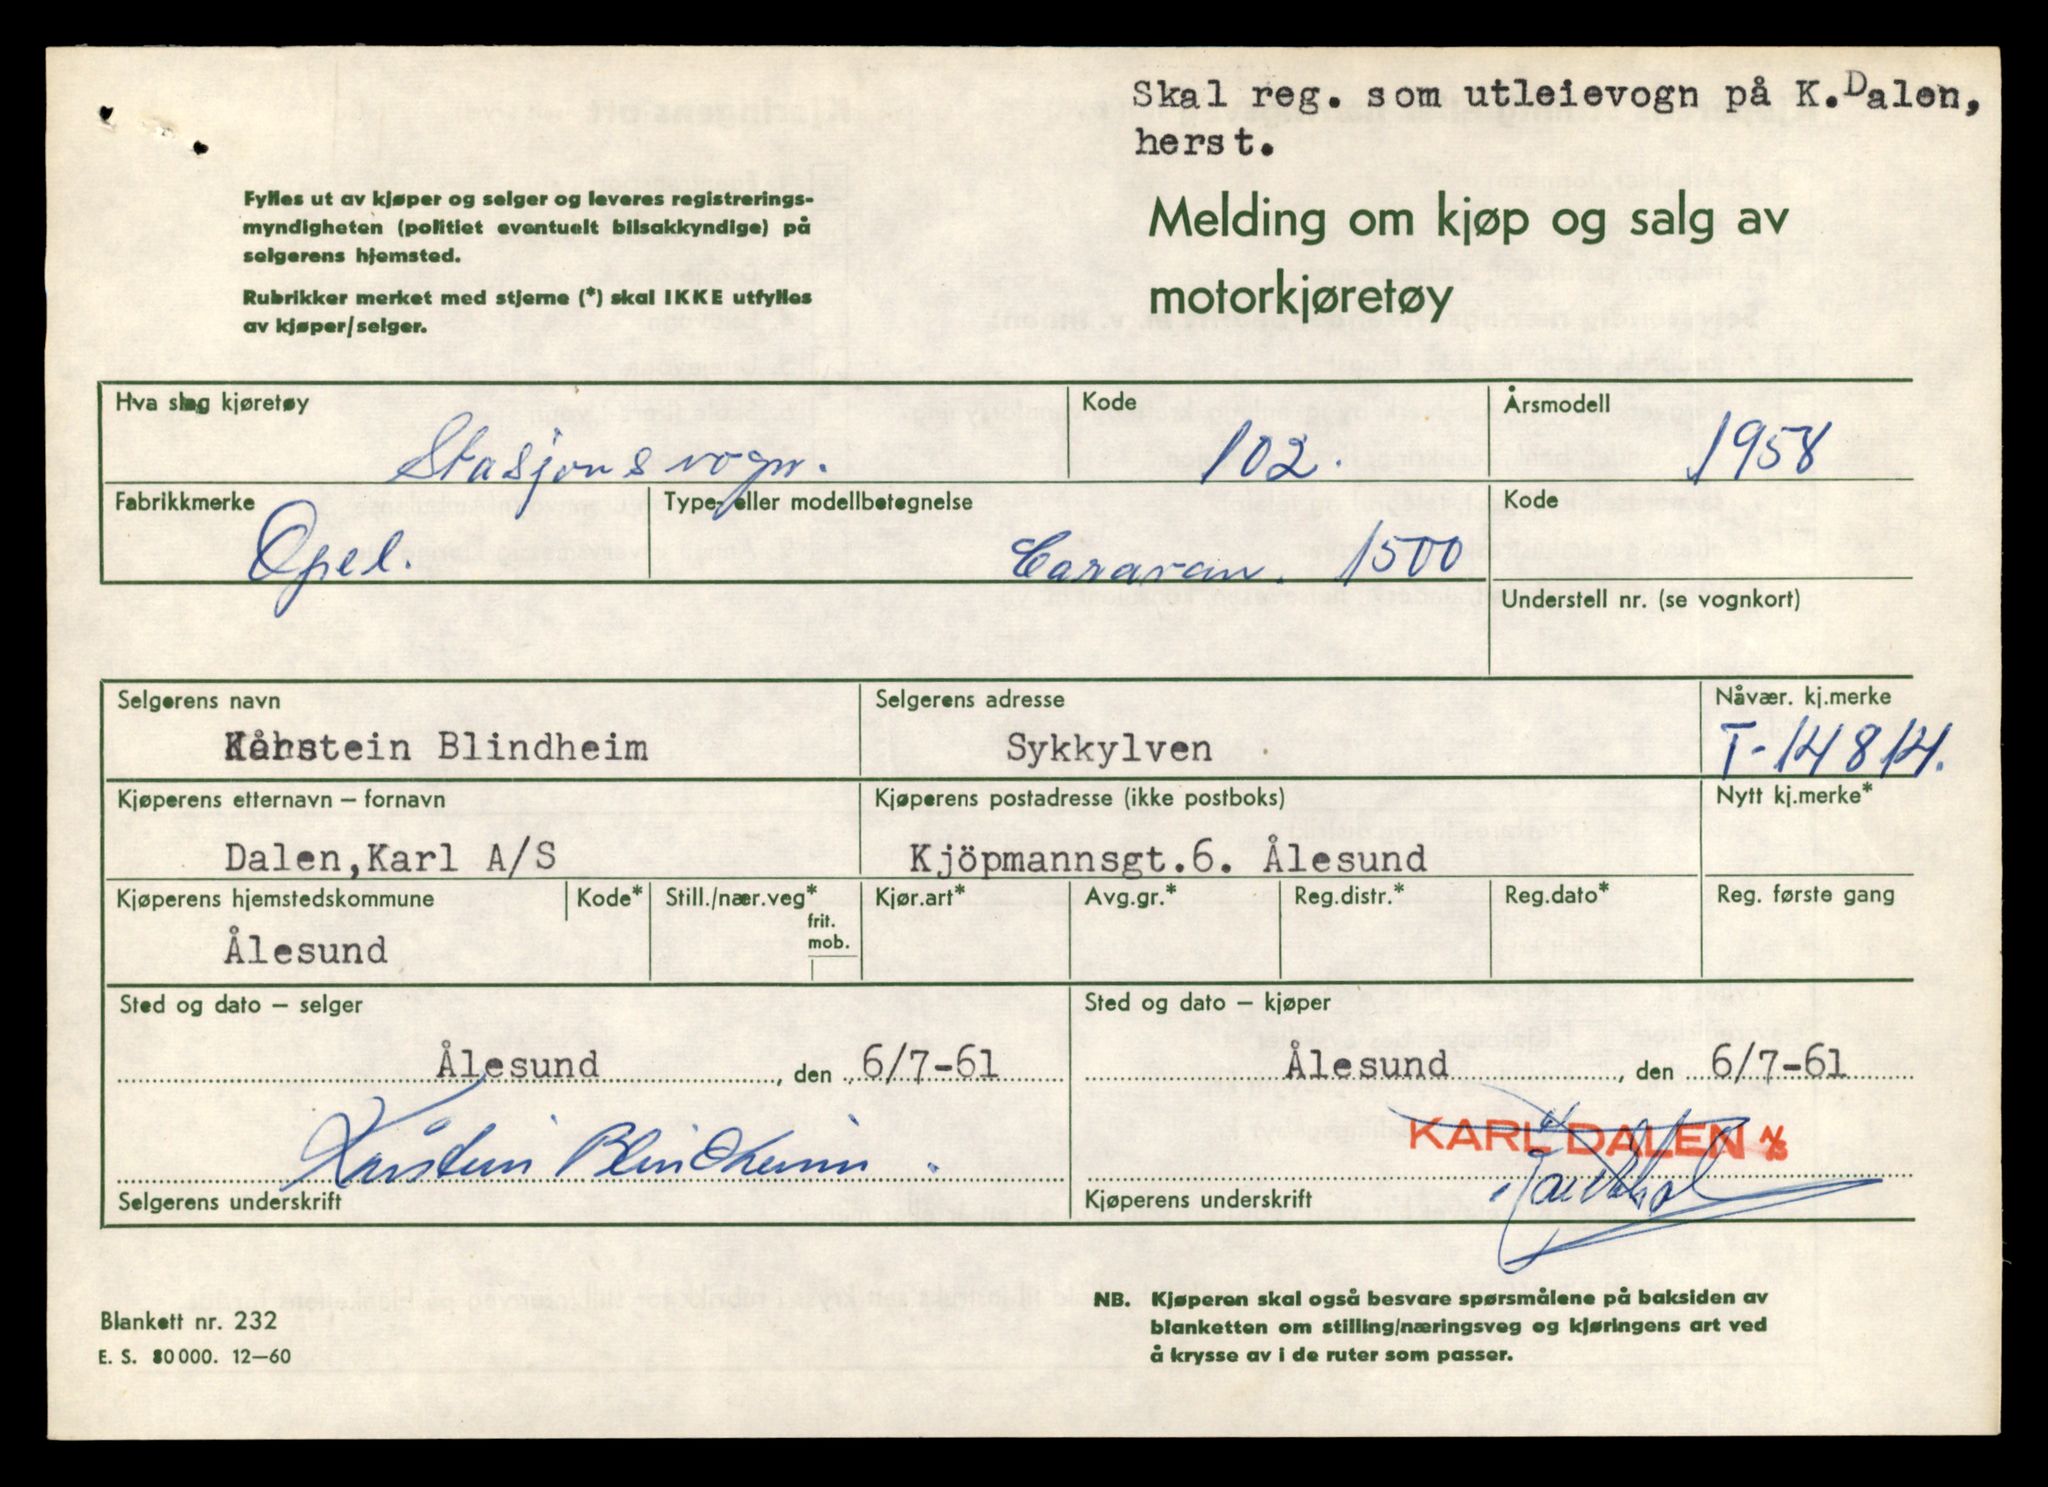 Skal reg. som utleievogn på K.Dalen,
herst.
Fylles ut av kjøper og selger og leveres registrerings-
myndigheten (politiet eventuelt bilsakkyndige) på
selgerens hjemsted.
Rubrikker merket med stjerne (*) skal IKKE utfylles
av kjøper/selger.
Melding om kjøp og salg av
motorkjøretøy
Hva slag kjøretøy
Stasjonsvogn.
Kode
102.
Årsmodell
1958
Fabrikkmerke
Opel.
Type- eller modellbetegnelse
Caravan. 1500
Kode
Understell nr. (se vognkort)
Selgerens navn
Kårstein Blindheim
Selgerens adresse
Sykkylven
Nåvær. kj.merke
T-14814.
Kjøperens etternavn – fornavn
Dalen,Karl A/S
Kjøperens postadresse (ikke postboks)
Kjöpmannsgt.6. Ålesund
Nytt kj.merke*
Kjøperens hjemstedskommune
Ålesund
Kode*
Still./nær.veg*
frit.
mob.
Kjør.art*
Avg.gr.*
Reg.distr.*
Reg.dato*
Reg. første gang
Sted og dato – selger
Ålesund, den 6/7-61
Kårstein Blindheim.
Selgerens underskrift
Sted og dato – kjøper
Ålesund, den 6/7-61
KARL DALEN A/S
Kjøperens underskrift
Blankett nr. 232
E. S. 80000. 12–60
NB. Kjøperen skal også besvare spørsmålene på baksiden av
blanketten om stilling/næringsveg og kjøringens art ved
å krysse av i de ruter som passer.